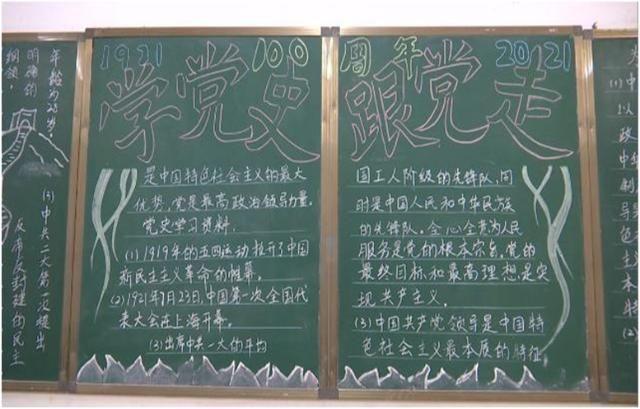 年龄为28岁。
明确的
纲领，
中共二大第一次提出
反帝反封建的民主
1921 100
学党史
是中国特色社会主义的最大
优势，党是最高政治领导力量。
党史学习资料.
(1)1919年的五四运动拉开了中国
新民主主义革命的帷幕。
(2)1921年7月23日，中国第一次全国代
表大会在上海开幕。
(3)出席中共一大的平均
周年 2021
跟党走
国工人阶级的先锋队，同
时是中国人民和中华民族
的先锋队。全心全意为人民
服务是党的根本宗旨。党的
最终目标和最高理想是实
现共产主义。
(3)中国共产党领导是中国特
色社会主义最本质的特征
(1)中
以
政
中
制
导
色
主
本
(2)